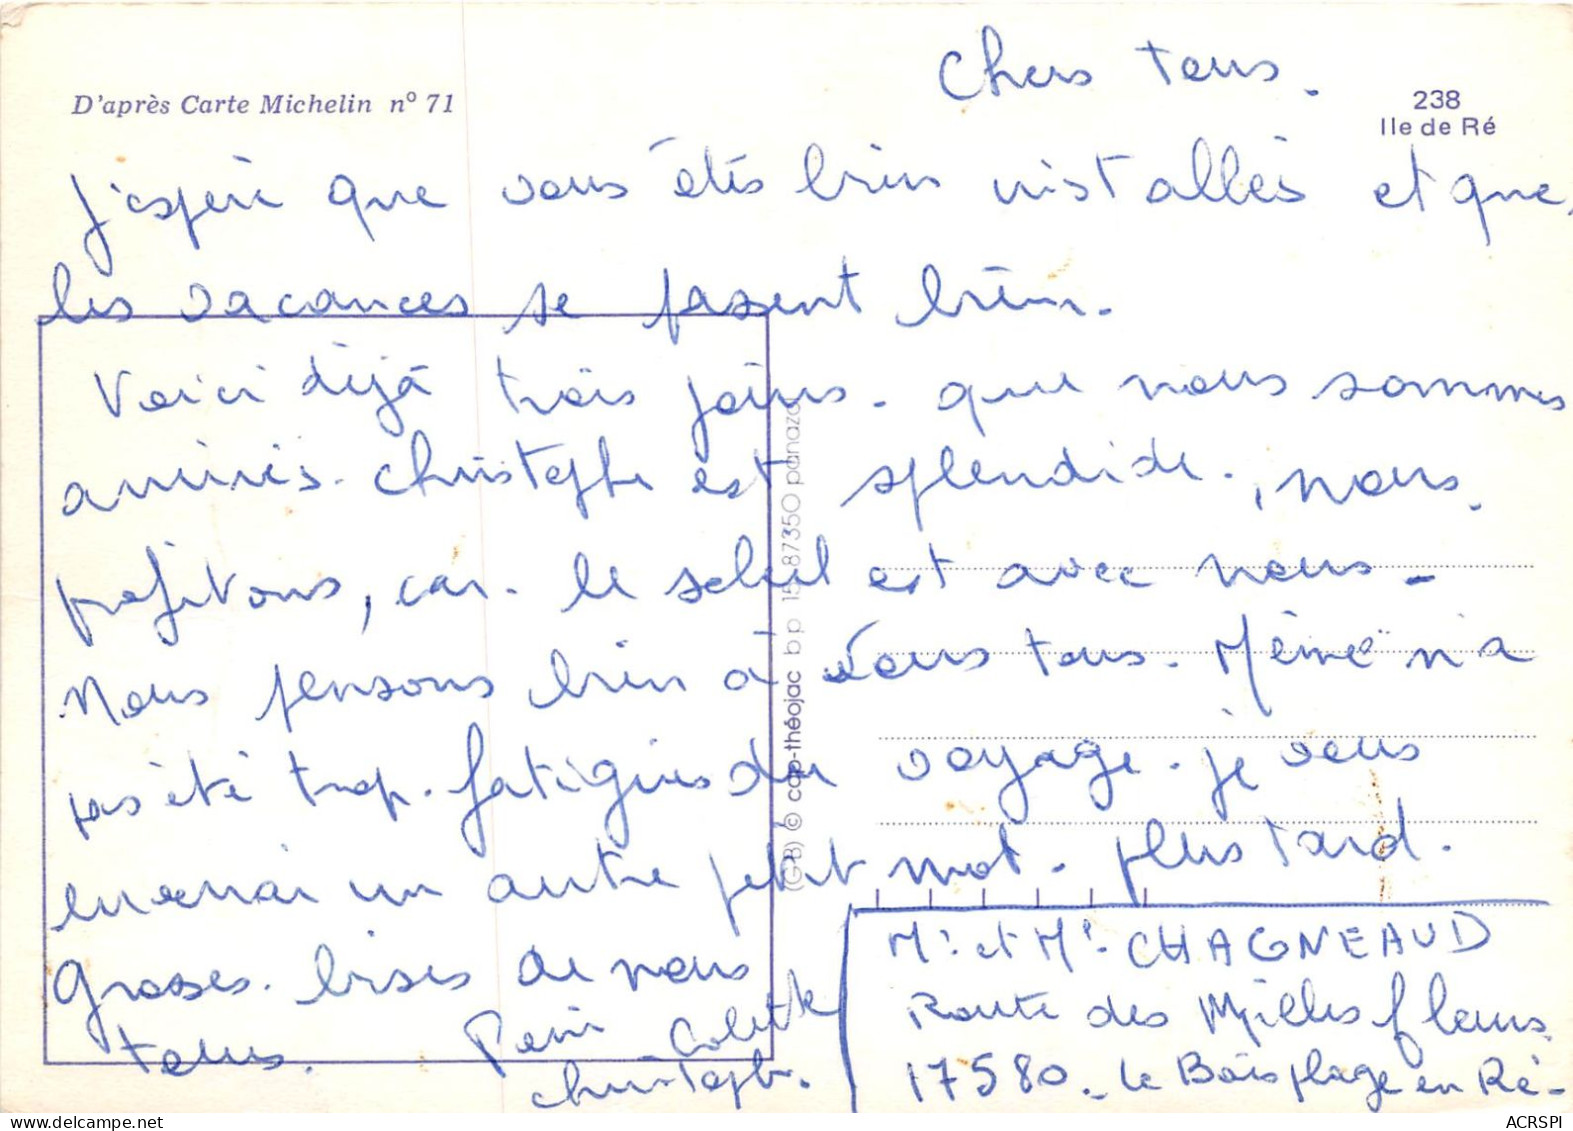 Chers tous.
D'après Carte Michelin nº 71
238
Ile de Ré
J'espère que vous étés bien installés et que
les vacances se passent bien.
Voici déjà trois jours. que nous sommes
arrivés. Christophe est splendide., nous.
profitons, car. le soleil est avec nous-
Nous pensons bien à vous tous. Mémé n'a
pas été trop. fatiguée du voyage. je vous
enverrai un autre petit mot. plus tard.
Grosses. bises de nous
tous. Colette
Christophe.
(GB) © cap-théojac bp 15 87350 panazol
Mr. et Me. CHAGNEAUD
Route des Milles fleurs.
17580. Le Bois plage en Ré-
ACRSPI